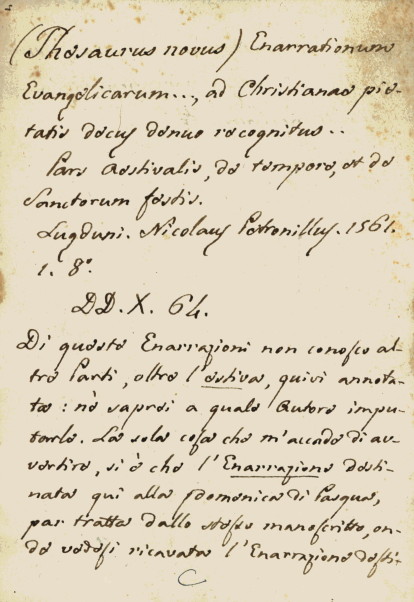 (Thesaurus novus) Enarrationum
Evangelicarum..., ad Christianae pie-
tatis decus denuo recognitus..
Pars Aestivalis, de tempore, et de
Sanctorum festis.
Lugduni. Nicolaus Petronillus. 1561.
1. 8°.
DD. X. 64.
Di queste Enarrazioni non conosco al-
tre Parti, oltre l'estiva, quivi annota-
ta: nè saprei a quale Autore impu-
tarle. La sola cosa che m'accade di av-
vertire, si è che l'Enarrazione desti-
nata qui alla domenica di Pasqua,
par tratta dallo stesso manoscritto, on-
de vedesi ricavata l'Enarrazione desti-